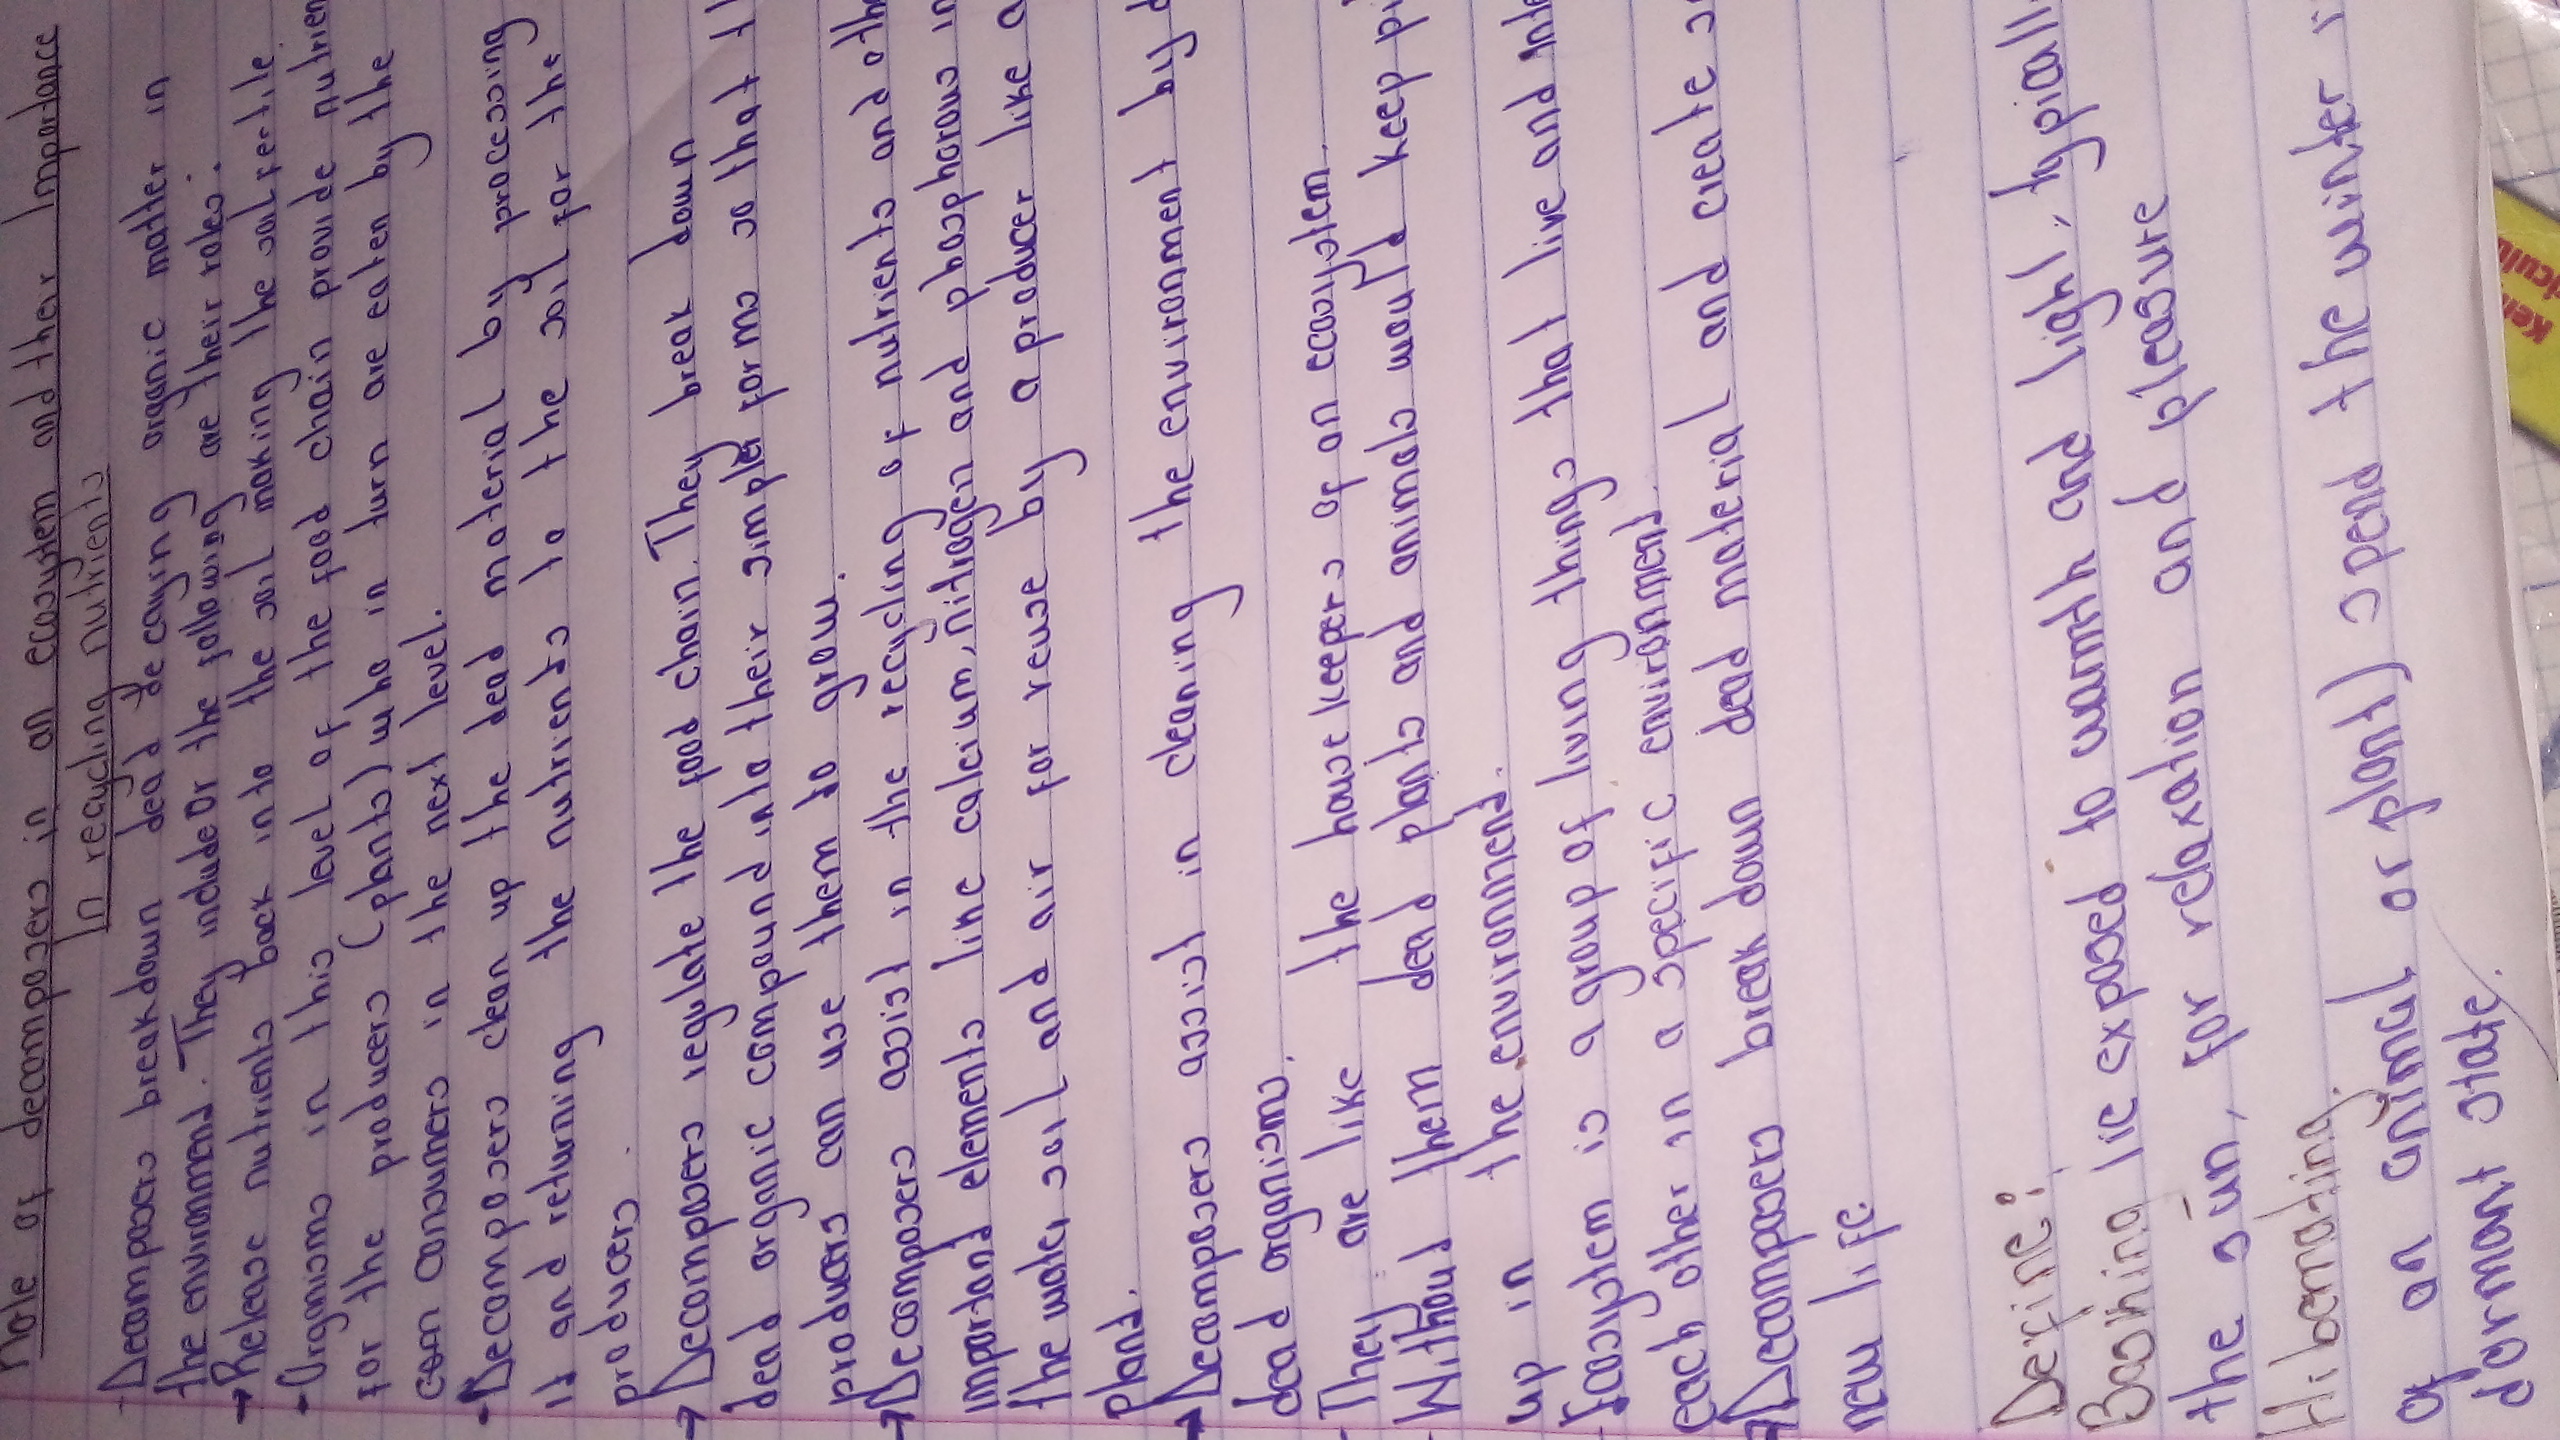 Role of decomposers in an ecosystem and their Importance
In recycling nutrients
- Decomposers breakdown dead decaying organic matter in
the environment. They include or the following are their roles:
→ Release nutrients back into the soil making the soil fertile.
- Organisms in this level of the food chain provide nutrien
for the producers (plants) who in turn are eaten by the
consumers in the next level.
- Decomposers clean up the dead material by processing
it and returning the nutrients to the soil for the
producers.
→ Decomposers regulate the food chain. They break down
dead organic compound into their simpler forms so that t
producers can use them to grow.
→ Decomposers assist in the recycling of nutrients and oth
important elements like calcium, nitrogen and phosphorous in
the water soil and air for reuse by a producer like a
plant.
→ Decomposers assist in cleaning the environment by
dead organisms.
- They are like the house keepers of an ecosystem.
- Without them dead plants and animals would keep
up in the environment.
- Ecosystem is a group of living things that live and int
each other in a specific environment.
→ Decomposers break down dead material and create
new life.
Define:
Basking lie exposed to warmth and light, typicall
the sun, for relaxation and pleasure
Hibernating.
of an animal or plant) spend the winter i
dormant state.
Ken